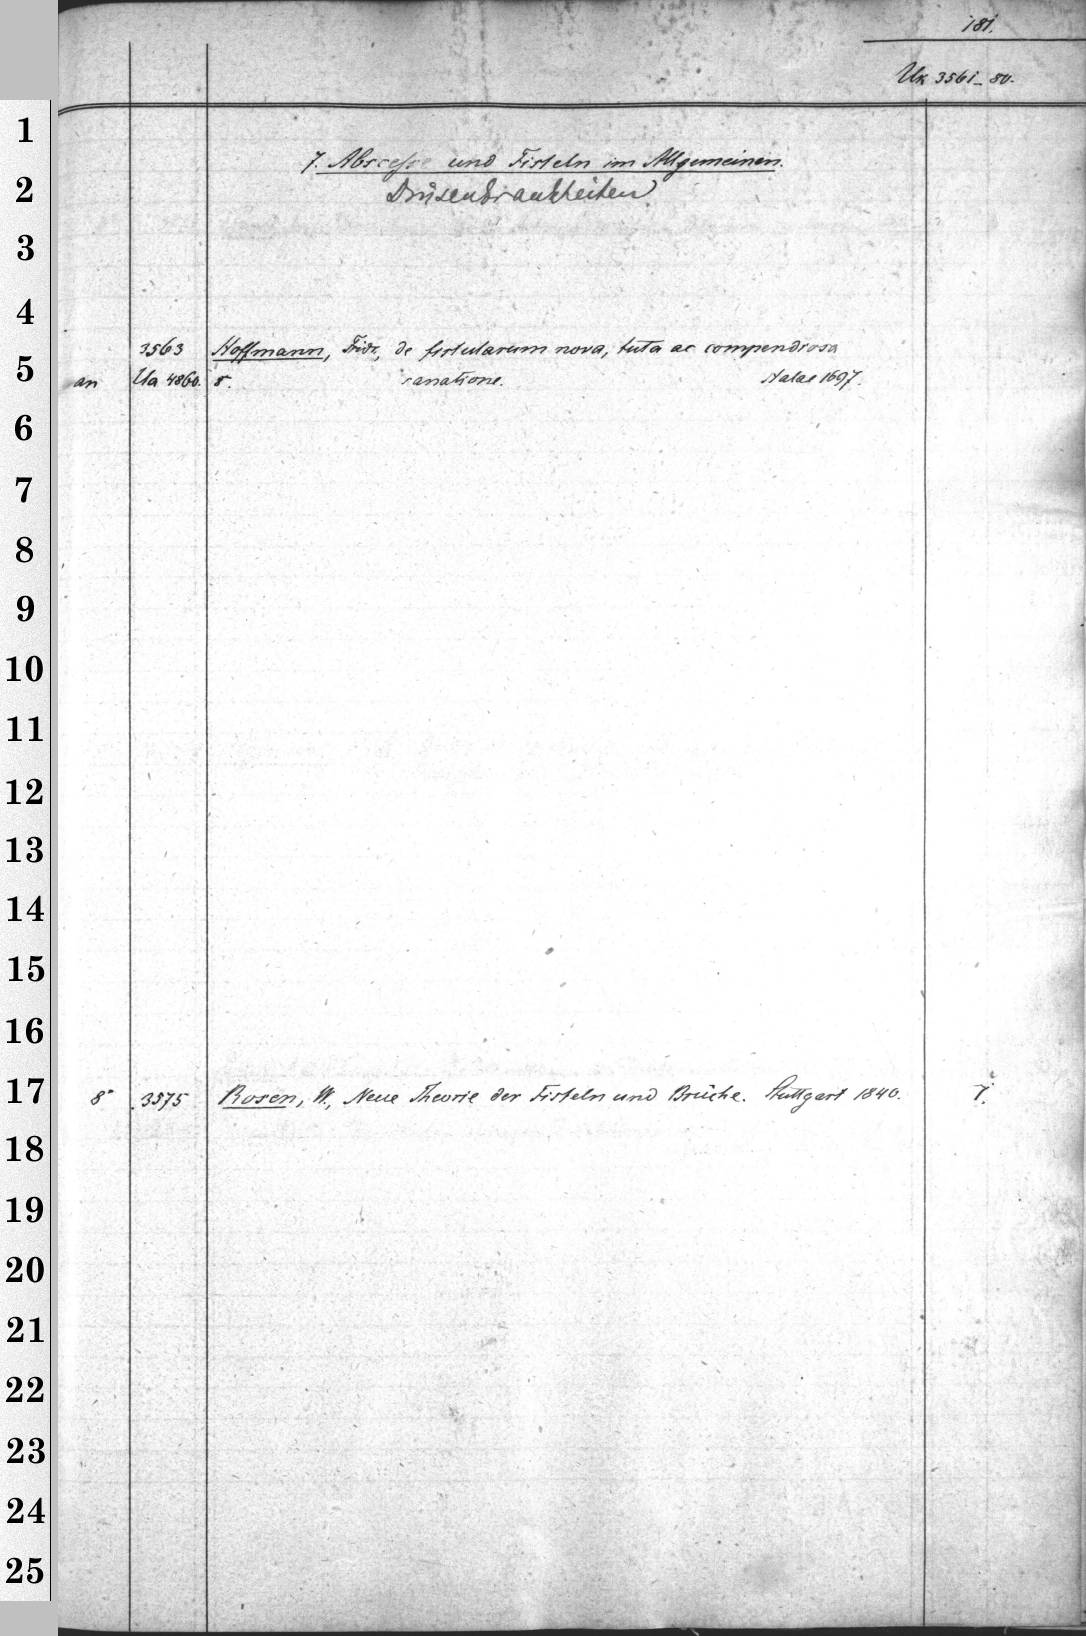 181.
Uk 3561-80.
1
7. Abscesse und Fisteln im Allgemeinen.
2
Drüsenkrankheiten.
3
4
3563 Hoffmann, Fridr., de fistularum nova, tuta ac compendiosa
5
an Ua 4860. 8. sanatione. Halae 1697.
6
7
8
9
10
11
12
13
14
15
16
17
8° 3575 Rosen, W., Neue Theorie der Fisteln und Brüche. Stuttgart 1840.
18
19
20
21
22
23
24
25